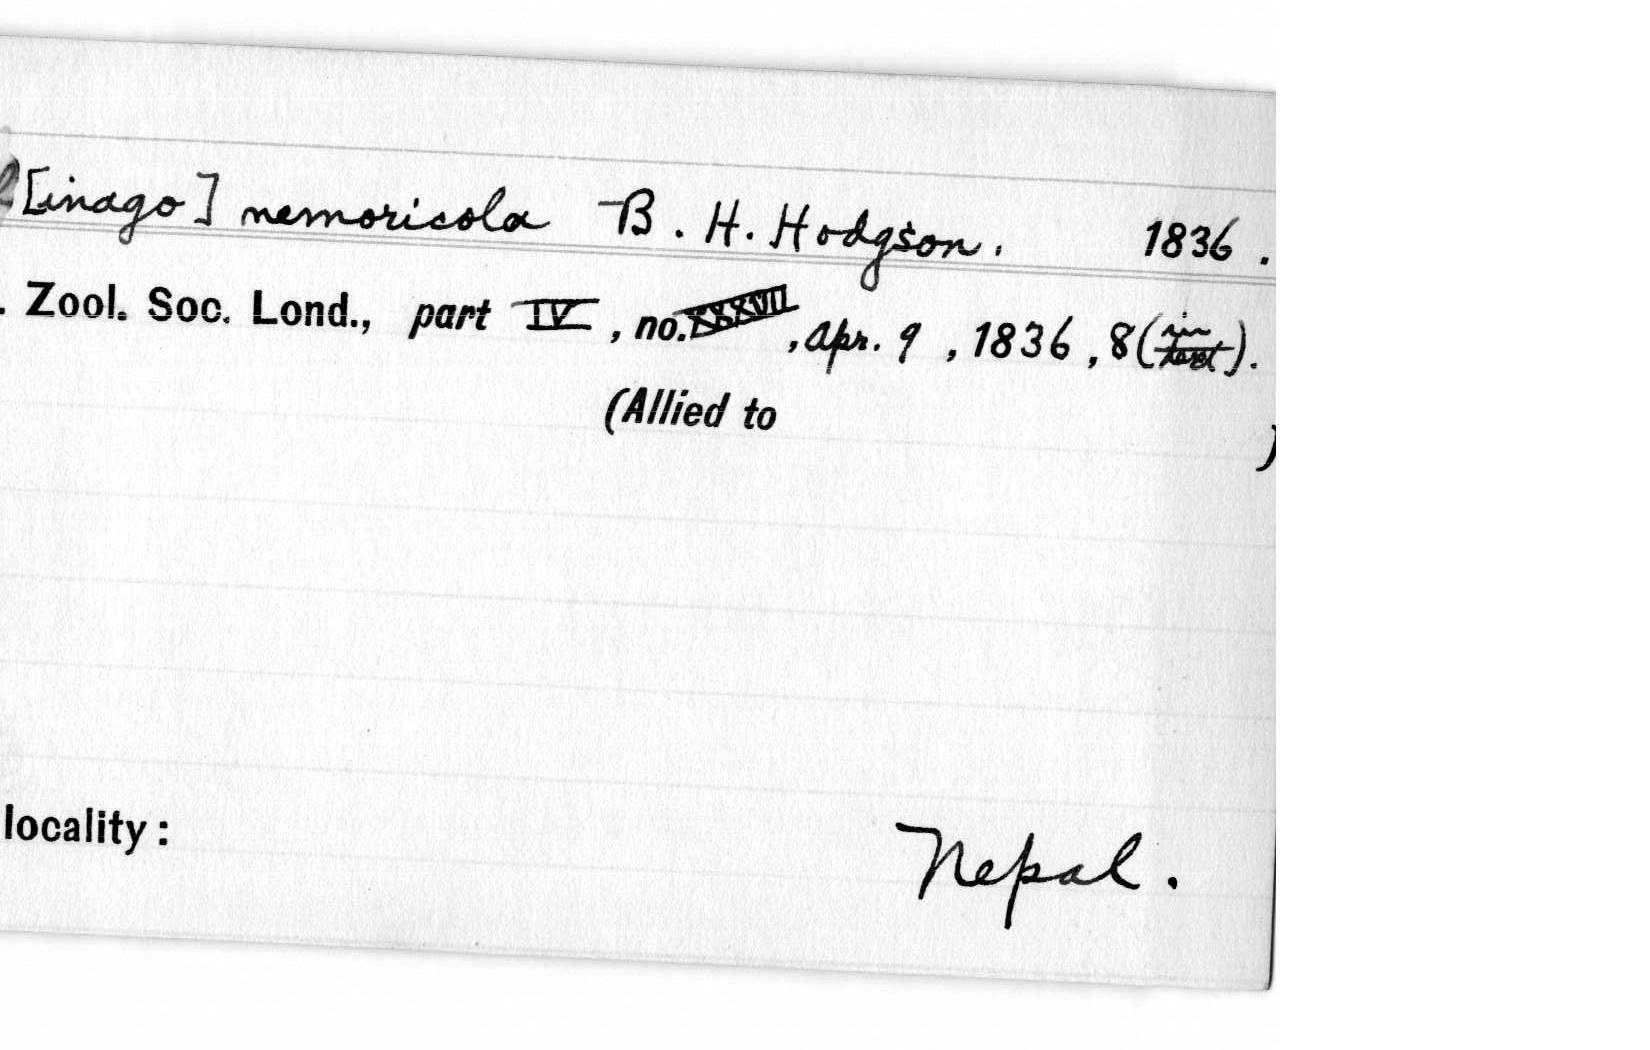 [inago] nemoricola B. H. Hodgson. 1836.
. Zool. Soc. Lond., part IV, no. XXXVII, Apr. 9, 1836, 8 (in text).
(Allied to )
locality: Nepal.